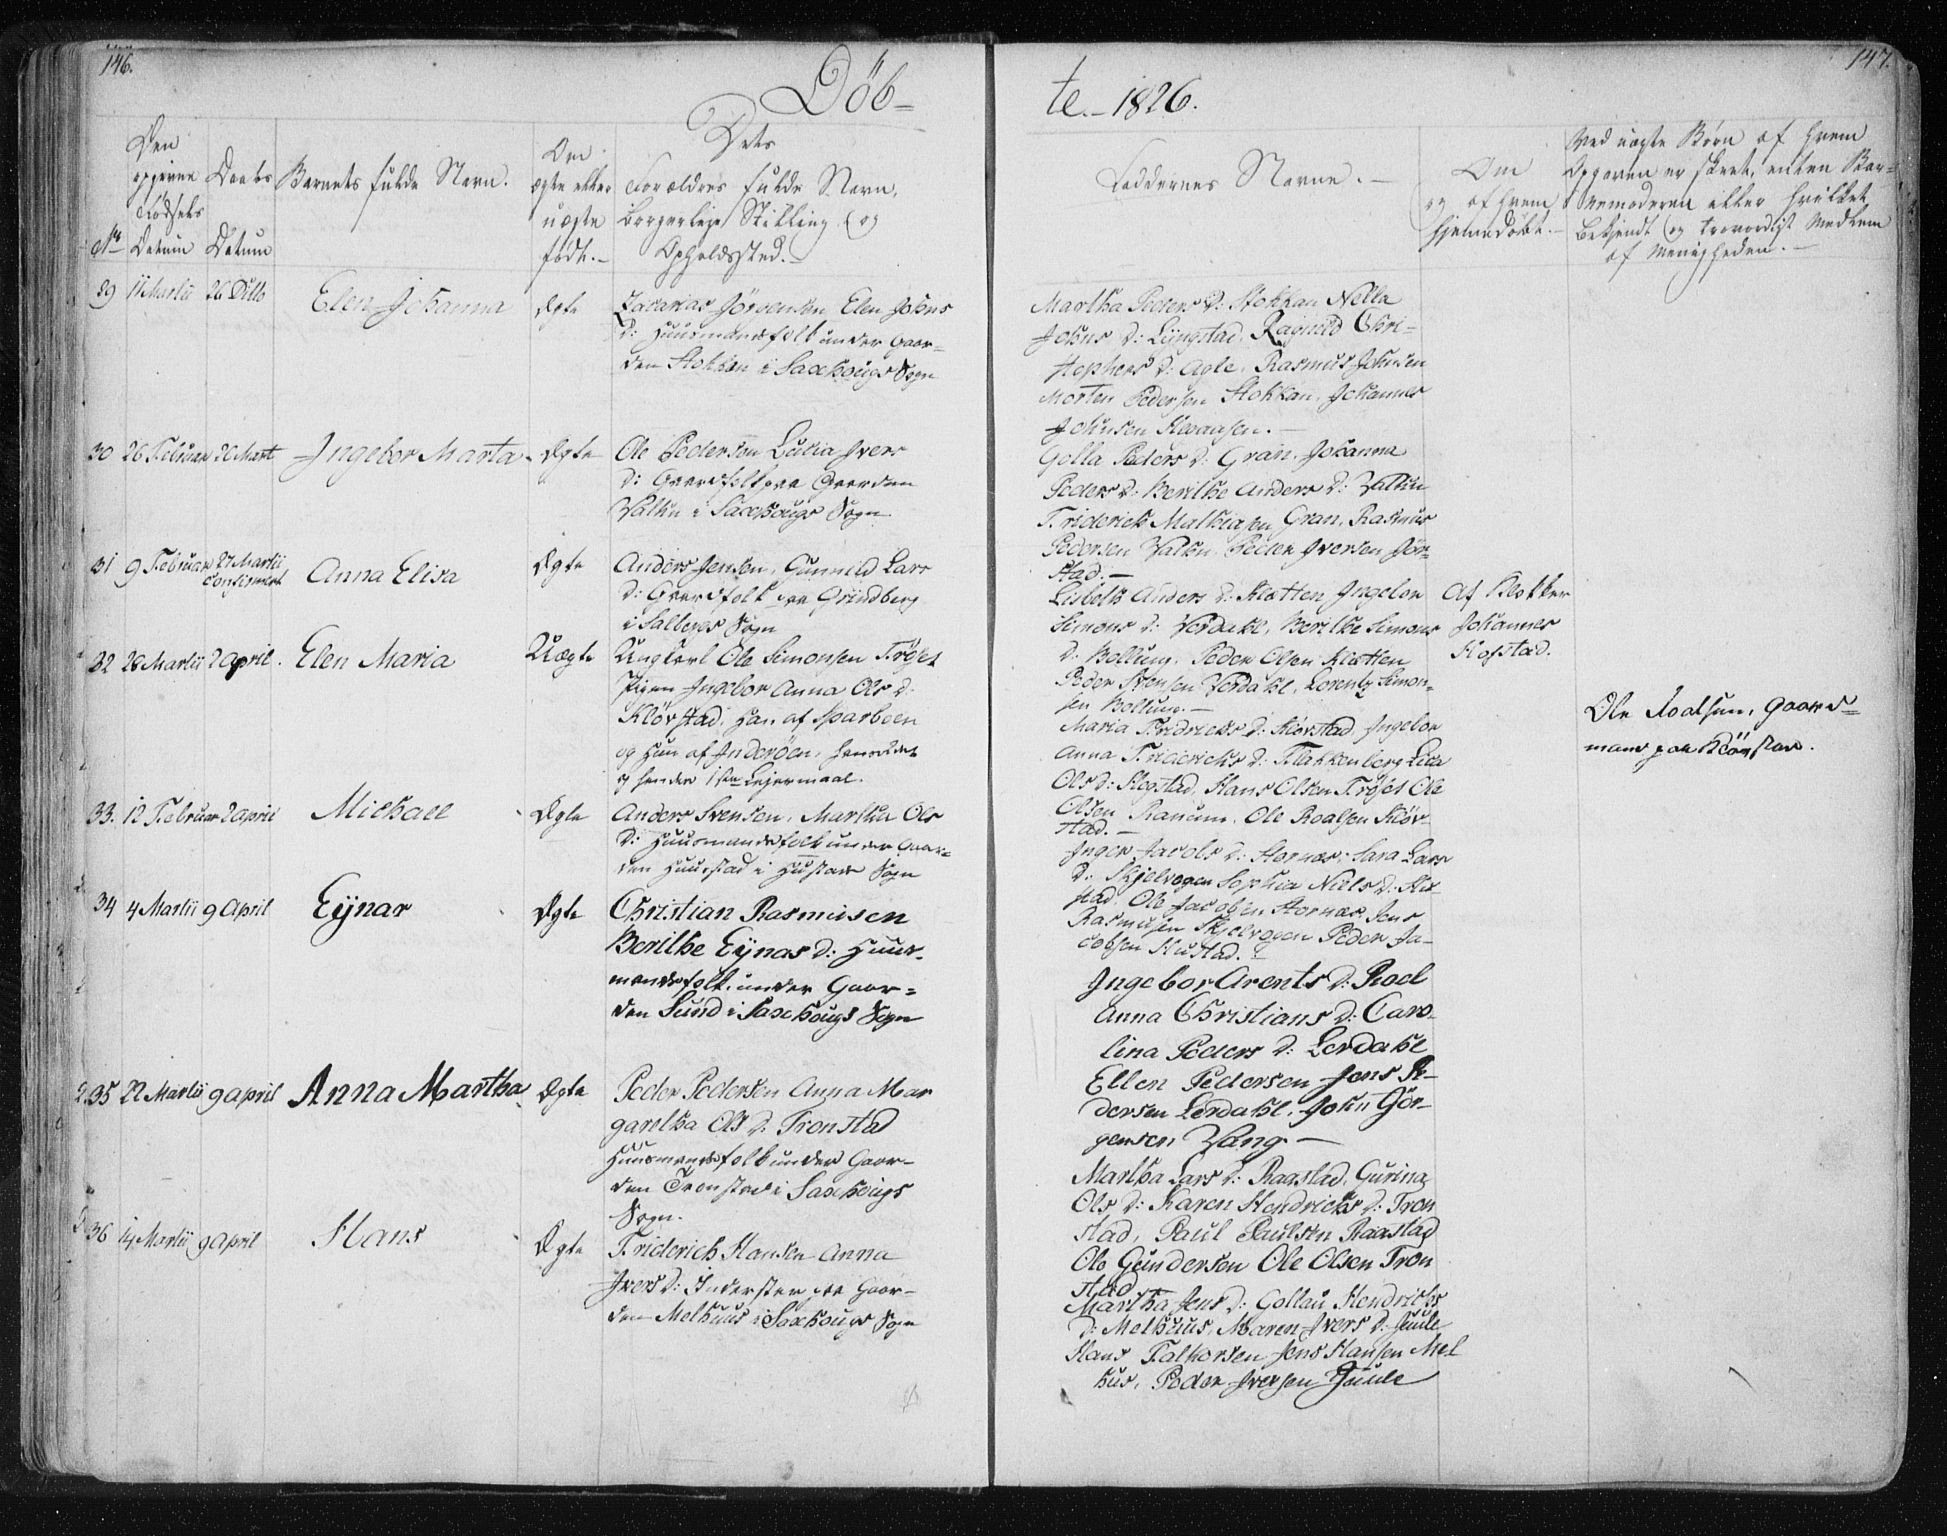 146.
147.
Döb-
te.- 1826.
Den
opgivne
Fødsels
Datum
No
Daabs
Datum
Barnets fulde Navn.
Om
ægte eller
uægte
født.-
Dets
Forældres fulde Navn,
borgerlige Stilling og
Opholdssted.-
Faddernes Navne.-
Om
og af hvem
hjemedøbt.-
Ved uægte Børn af hvem
Opgaven er skeet, enten Bar-
nemoderen eller hvilket
bekjendt og troværdigt Medlem
af Menigheden.-
29 11 Martii 26 Ditto Elen Johanna Ægte
Zakarias Jörgensen Elen Johns
d: Huusmandsfolk under Gaar-
den Stokkan i Saxhougs Sogn
Martha Peders d: Stokkan Nella
Johns d: Lÿngstad, Ragnild Chri-
stophers d: Agle, Rasmus Johnsen
Morten Pedersen Stokkan, Johannes
Johnsen
30 26 Februar 26 Mart Ingebor Marta Ægte
Ole Pedersen Lusia Ivers
d: Gaardfolk paa Gaarden
Valkn i Saxhougs Sogn
Golla Peders d: Gran, Johanna
Peders d: Berithe Anders d: Valkn
Friderich Mathiasen Gran, Rasmus
Pedersen Valkn Peder Iversen Jör-
stad.-
31 9 Februar 27 Martii
confirmert
Anna Elisa Ægte
Anders Jensen, Gunnild Lars
d: Gaardfolk paa Grindberg
i Salberg Sogn
Lisbeth Anders d: Kletten Ingebor
Simons d: Verdahl, Berithe Simons
d: Bollung, Peder Olsen Kletten
Peder Svensen Verdahl, Lorentz Simon-
sen Bollung.-
Af Klokker
Johannes
Hofstad.
32 26 Martii 2 April. Elen Maria Uægte
Ungkarl Ole Simonsen Trøset
Pigen Ingebor Anna Ols d:
Klövstad, Han af Sparboen
og Hun af Inderöen, hans 
og hendes 1ste Lejermaal.
Maria Fridrichs d: Klövstad Ingebor
Anna Fridrichs d: Flakkenberg Lisa
Ols d: Hegstad, Hans Olsen Trøset Ole
Olsen Ranum, Ole Roalsen Klöv-
stad.-
Ole Roalsen, Gaard-
mand paa Klövstad.
33. 12 Februar 2 April Michael Ægte
Anders Svensen, Martha Ols
d: Huusmandsfolk under Gaar-
den Huustad i Hustads Sogn
Inger Jacobs d: Stornæs, Sara Lars
d: Skjelvogen Sophia Niels d: Hu-
stad Ole Jacobsen Stornæs, Jens
Rasmusen Skjelvogen Peder Ja-
cobsen Hustad.
34 4 Martii 9 April Eÿnar Ægte
Christian Rasmusen
Berithe Eÿnas d: Huus-
mandsfolk under Gaar-
den Sund i Saxhougs Sogn
Ingebor Arents d: Roel
Anna Christians d: Caro-
lina Peders d: Lerdahl
Ellen Pedersen Jens Pe-
dersen Lerdahl, John Gör-
gensen Vang.-
35 22 Martii 9 April Anna Martha Ægte
Peder Pedersen Anna Mar
garetha Ols d: Tronstad
Huusmandsfolk under Gaar-
den Tronstad i Saxhougs
Sogn.
Martha Lars d: Raastad, Gurina
Ols d: Karen Hendrichs d: Tron
stad, Paul Paulsen Raastad
Ole Gundersen Ole Olsen Tron
stad
36 14 Martii 9 April Hans Ægte
Friderich Hansen Anna
Ivers d: Inderster paa Gaar-
den Melhuus i Saxhougs Sogn
Martha Jens d: Gollau Hendrichs
d: Melhuus, Maren Ivers d: Juule
Hans Falkorsen Jens Hansen Mel
hus, Peder Iversen Juule